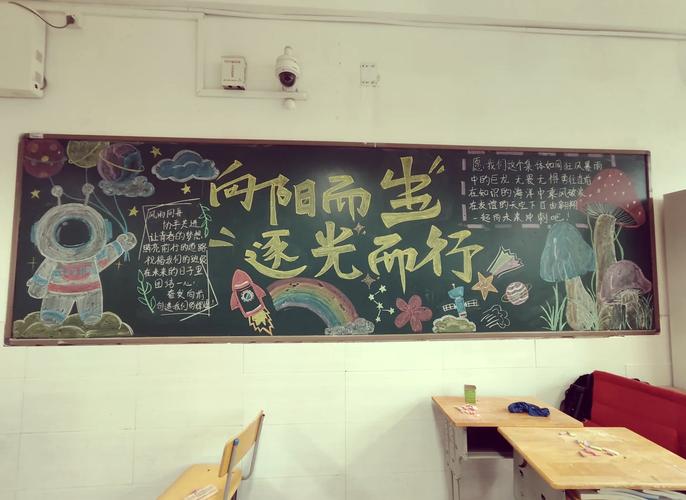 向阳而生
逐光而行
风雨同舟
协手共进
让青春的梦想
照亮前行的道路
祝福我们的班级
在未来的日子里
团结一心
奋发向前
创造我们的辉煌
愿我们这个集体如同狂风暴雨
中的巨龙无畏无惧勇往直前
在知识的海洋中乘风破浪
在友谊的天空下自由翱翔
一起向未来冲刺吧！